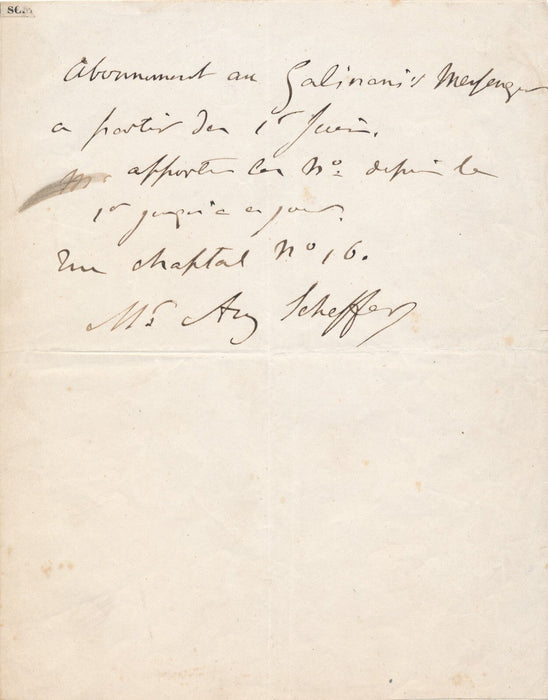 SC.
Abonnement au Galinani's Messenger
a partir du 1er Juin.
apporter les No. depuis le
1er jusqu'a ce jour.
rue chaptal No 16.
Mr Ary Scheffer